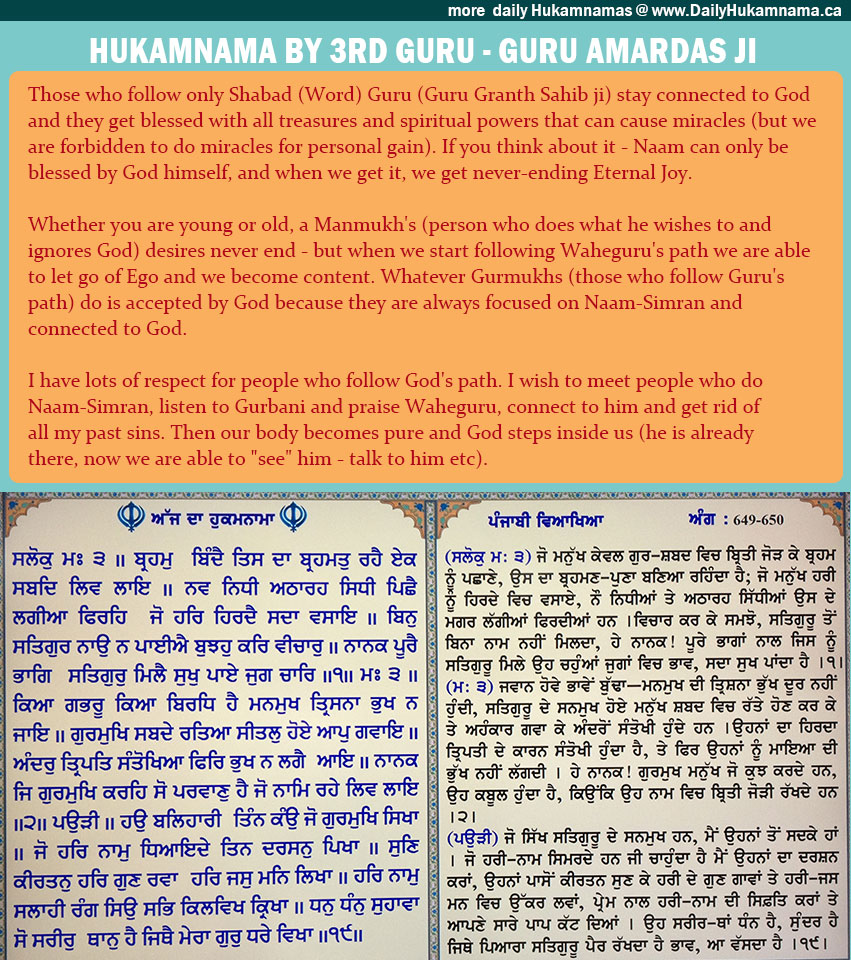 more daily Hukamnamas @ www.DailyHukamnama.ca
HUKAMNAMA BY 3RD GURU - GURU AMARDAS JI
Those who follow only Shabad (Word) Guru (Guru Granth Sahib ji) stay connected to God
and they get blessed with all treasures and spiritual powers that can cause miracles (but we
are forbidden to do miracles for personal gain). If you think about it - Naam can only be
blessed by God himself, and when we get it, we get never-ending Eternal Joy.
Whether you are young or old, a Manmukh's (person who does what he wishes to and
ignores God) desires never end - but when we start following Waheguru's path we are able
to let go of Ego and we become content. Whatever Gurmukhs (those who follow Guru's
path) do is accepted by God because they are always focused on Naam-Simran and
connected to God.
I have lots of respect for people who follow God's path. I wish to meet people who do
Naam-Simran, listen to Gurbani and praise Waheguru, connect to him and get rid of
all my past sins. Then our body becomes pure and God steps inside us (he is already
there, now we are able to "see" him - talk to him etc).
ਅੱਜ ਦਾ ਹੁਕਮਨਾਮਾ
ਸਲੋਕੁ ਮਃ ੩ ॥ ਬ੍ਰਹਮੁ ਬਿੰਦੈ ਤਿਸ ਦਾ ਬ੍ਰਹਮਤੁ ਰਹੈ ਏਕ
ਸਬਦਿ ਲਿਵ ਲਾਇ ॥ ਨਵ ਨਿਧੀ ਅਠਾਰਹ ਸਿਧੀ ਪਿਛੈ
ਲਗੀਆ ਫਿਰਹਿ ਜੋ ਹਰਿ ਹਿਰਦੈ ਸਦਾ ਵਸਾਇ ॥ ਬਿਨੁ
ਸਤਿਗੁਰ ਨਾਉ ਨ ਪਾਈਐ ਬੁਝਹੁ ਕਰਿ ਵੀਚਾਰੁ ॥ ਨਾਨਕ ਪੂਰੈ
ਭਾਗਿ ਸਤਿਗੁਰੁ ਮਿਲੈ ਸੁਖੁ ਪਾਏ ਜੁਗ ਚਾਰਿ ॥੧॥ ਮਃ ੩ ॥
ਕਿਆ ਗਭਰੂ ਕਿਆ ਬਿਰਧਿ ਹੈ ਮਨਮੁਖ ਤ੍ਰਿਸਨਾ ਭੁਖ ਨ
ਜਾਇ ॥ ਗੁਰਮੁਖਿ ਸਬਦੇ ਰਤਿਆ ਸੀਤਲੁ ਹੋਏ ਆਪੁ ਗਵਾਇ ॥
ਅੰਦਰੁ ਤ੍ਰਿਪਤਿ ਸੰਤੋਖਿਆ ਫਿਰਿ ਭੁਖ ਨ ਲਗੈ ਆਇ ॥ ਨਾਨਕ
ਜਿ ਗੁਰਮੁਖਿ ਕਰਹਿ ਸੋ ਪਰਵਾਣੁ ਹੈ ਜੋ ਨਾਮਿ ਰਹੇ ਲਿਵ ਲਾਇ
॥੨॥ ਪਉੜੀ ॥ ਹਉ ਬਲਿਹਾਰੀ ਤਿੰਨ ਕੰਉ ਜੋ ਗੁਰਮੁਖਿ ਸਿਖਾ
॥ ਜੋ ਹਰਿ ਨਾਮੁ ਧਿਆਇਦੇ ਤਿਨ ਦਰਸਨੁ ਪਿਖਾ ॥ ਸੁਣਿ
ਕੀਰਤਨੁ ਹਰਿ ਗੁਣ ਰਵਾ ਹਰਿ ਜਸੁ ਮਨਿ ਲਿਖਾ ॥ ਹਰਿ ਨਾਮੁ
ਸਲਾਹੀ ਰੰਗ ਸਿਉ ਸਭਿ ਕਿਲਵਿਖ ਕ੍ਰਿਖਾ ॥ ਧਨੁ ਧੰਨੁ ਸੁਹਾਵਾ
ਸੋ ਸਰੀਰੁ ਥਾਨੁ ਹੈ ਜਿਥੈ ਮੇਰਾ ਗੁਰੁ ਧਰੇ ਵਿਖਾ ॥੧੯॥
ਪੰਜਾਬੀ ਵਿਆਖਿਆ ਅੰਗ : 649-650
(ਸਲੋਕੁ ਮ: ੩) ਜੋ ਮਨੁੱਖ ਕੇਵਲ ਗੁਰ-ਸ਼ਬਦ ਵਿਚ ਬ੍ਰਿਤੀ ਜੋੜ ਕੇ ਬ੍ਰਹਮ
ਨੂੰ ਪਛਾਣੇ, ਉਸ ਦਾ ਬ੍ਰਹਮਣ-ਪੁਣਾ ਬਣਿਆ ਰਹਿੰਦਾ ਹੈ; ਜੋ ਮਨੁੱਖ ਹਰੀ
ਨੂੰ ਹਿਰਦੇ ਵਿਚ ਵਸਾਏ, ਨੌ ਨਿਧੀਆਂ ਤੇ ਅਠਾਰਹ ਸਿੱਧੀਆਂ ਉਸ ਦੇ
ਮਗਰ ਲੱਗੀਆਂ ਫਿਰਦੀਆਂ ਹਨ ।ਵਿਚਾਰ ਕਰ ਕੇ ਸਮਝੋ, ਸਤਿਗੁਰੂ ਤੋਂ
ਬਿਨਾ ਨਾਮ ਨਹੀਂ ਮਿਲਦਾ, ਹੇ ਨਾਨਕ! ਪੂਰੇ ਭਾਗਾਂ ਨਾਲ ਜਿਸ ਨੂੰ
ਸਤਿਗੁਰੂ ਮਿਲੇ ਉਹ ਚਹੁੰਆਂ ਜੁਗਾਂ ਵਿਚ ਭਾਵ, ਸਦਾ ਸੁਖ ਪਾਂਦਾ ਹੈ ।੧।
(ਮ: ੩) ਜਵਾਨ ਹੋਵੇ ਭਾਵੇਂ ਬੁੱਢਾ—ਮਨਮੁਖ ਦੀ ਤ੍ਰਿਸ਼ਨਾ ਭੁੱਖ ਦੂਰ ਨਹੀਂ
ਹੁੰਦੀ, ਸਤਿਗੁਰੂ ਦੇ ਸਨਮੁਖ ਹੋਏ ਮਨੁੱਖ ਸ਼ਬਦ ਵਿਚ ਰੱਤੇ ਹੋਣ ਕਰ ਕੇ
ਤੇ ਅਹੰਕਾਰ ਗਵਾ ਕੇ ਅੰਦਰੋਂ ਸੰਤੋਖੀ ਹੁੰਦੇ ਹਨ ।ਉਹਨਾਂ ਦਾ ਹਿਰਦਾ
ਤ੍ਰਿਪਤੀ ਦੇ ਕਾਰਨ ਸੰਤੋਖੀ ਹੁੰਦਾ ਹੈ, ਤੇ ਫਿਰ ਉਹਨਾਂ ਨੂੰ ਮਾਇਆ ਦੀ
ਭੁੱਖ ਨਹੀਂ ਲੱਗਦੀ । ਹੇ ਨਾਨਕ! ਗੁਰਮੁਖ ਮਨੁੱਖ ਜੋ ਕੁਝ ਕਰਦੇ ਹਨ,
ਉਹ ਕਬੂਲ ਹੁੰਦਾ ਹੈ, ਕਿਉਂਕਿ ਉਹ ਨਾਮ ਵਿਚ ਬ੍ਰਿਤੀ ਜੋੜੀ ਰੱਖਦੇ ਹਨ
।੨।
(ਪਉੜੀ) ਜੋ ਸਿੱਖ ਸਤਿਗੁਰੂ ਦੇ ਸਨਮੁਖ ਹਨ, ਮੈਂ ਉਹਨਾਂ ਤੋਂ ਸਦਕੇ ਹਾਂ
। ਜੋ ਹਰੀ-ਨਾਮ ਸਿਮਰਦੇ ਹਨ ਜੀ ਚਾਹੁੰਦਾ ਹੈ ਮੈਂ ਉਹਨਾਂ ਦਾ ਦਰਸ਼ਨ
ਕਰਾਂ, ਉਹਨਾਂ ਪਾਸੋਂ ਕੀਰਤਨ ਸੁਣ ਕੇ ਹਰੀ ਦੇ ਗੁਣ ਗਾਵਾਂ ਤੇ ਹਰੀ-ਜਸ
ਮਨ ਵਿਚ ਉੱਕਰ ਲਵਾਂ, ਪ੍ਰੇਮ ਨਾਲ ਹਰੀ-ਨਾਮ ਦੀ ਸਿਫ਼ਤਿ ਕਰਾਂ ਤੇ
ਆਪਣੇ ਸਾਰੇ ਪਾਪ ਕੱਟ ਦਿਆਂ । ਉਹ ਸਰੀਰ-ਥਾਂ ਧੰਨ ਹੈ, ਸੁੰਦਰ ਹੈ
ਜਿਥੇ ਪਿਆਰਾ ਸਤਿਗੁਰੂ ਪੈਰ ਰੱਖਦਾ ਹੈ ਭਾਵ, ਆ ਵੱਸਦਾ ਹੈ ।੧੯।